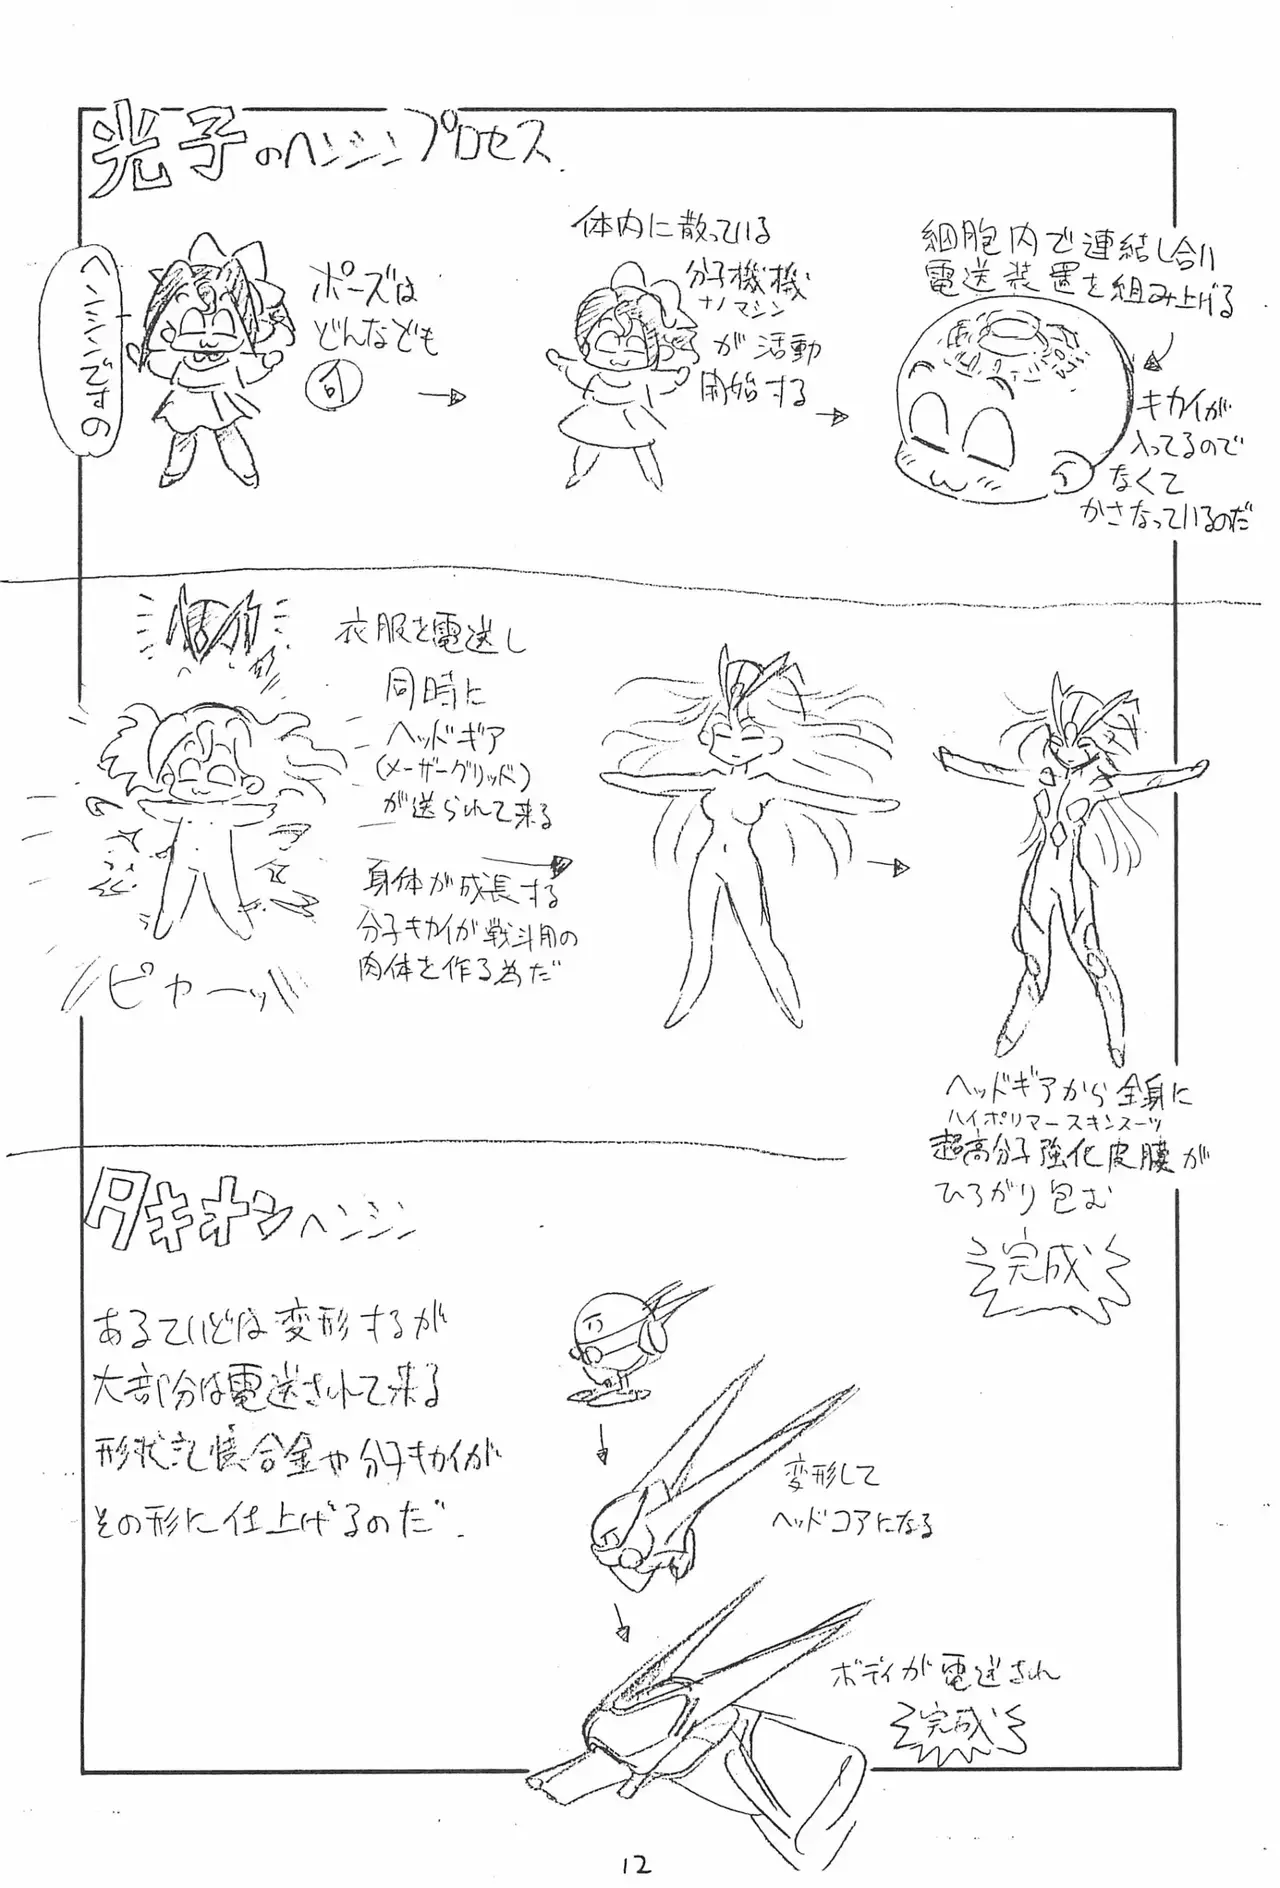 光子のヘンシンプロセス
ヘンシンですの
ポーズは
どんなども
可
体内に散っている
分子機械
ナノマシン
が活動
開始する
細胞内で連結し合い
電送装置を組み上げる
キカイが
入ってるので
なくて
かさなっているのだ
衣服を電送し
同時に
ヘッドギア
(メーザーグリッド)
が送られて来る
身体が成長する
分子キカイが戦斗用の
肉体を作る為だ
ピャーッ
ヘッドギアから全身に
ハイポリマースキンスーツ
超高分子強化皮膜が
ひろがり包む
完成
タキオンヘンシン
あるていどは変形するが
大部分は電送されて来る
形状記憶合金や分子キカイが
その形に仕上げるのだ.
変形して
ヘッドコアになる
ボディが電送され
完成
12